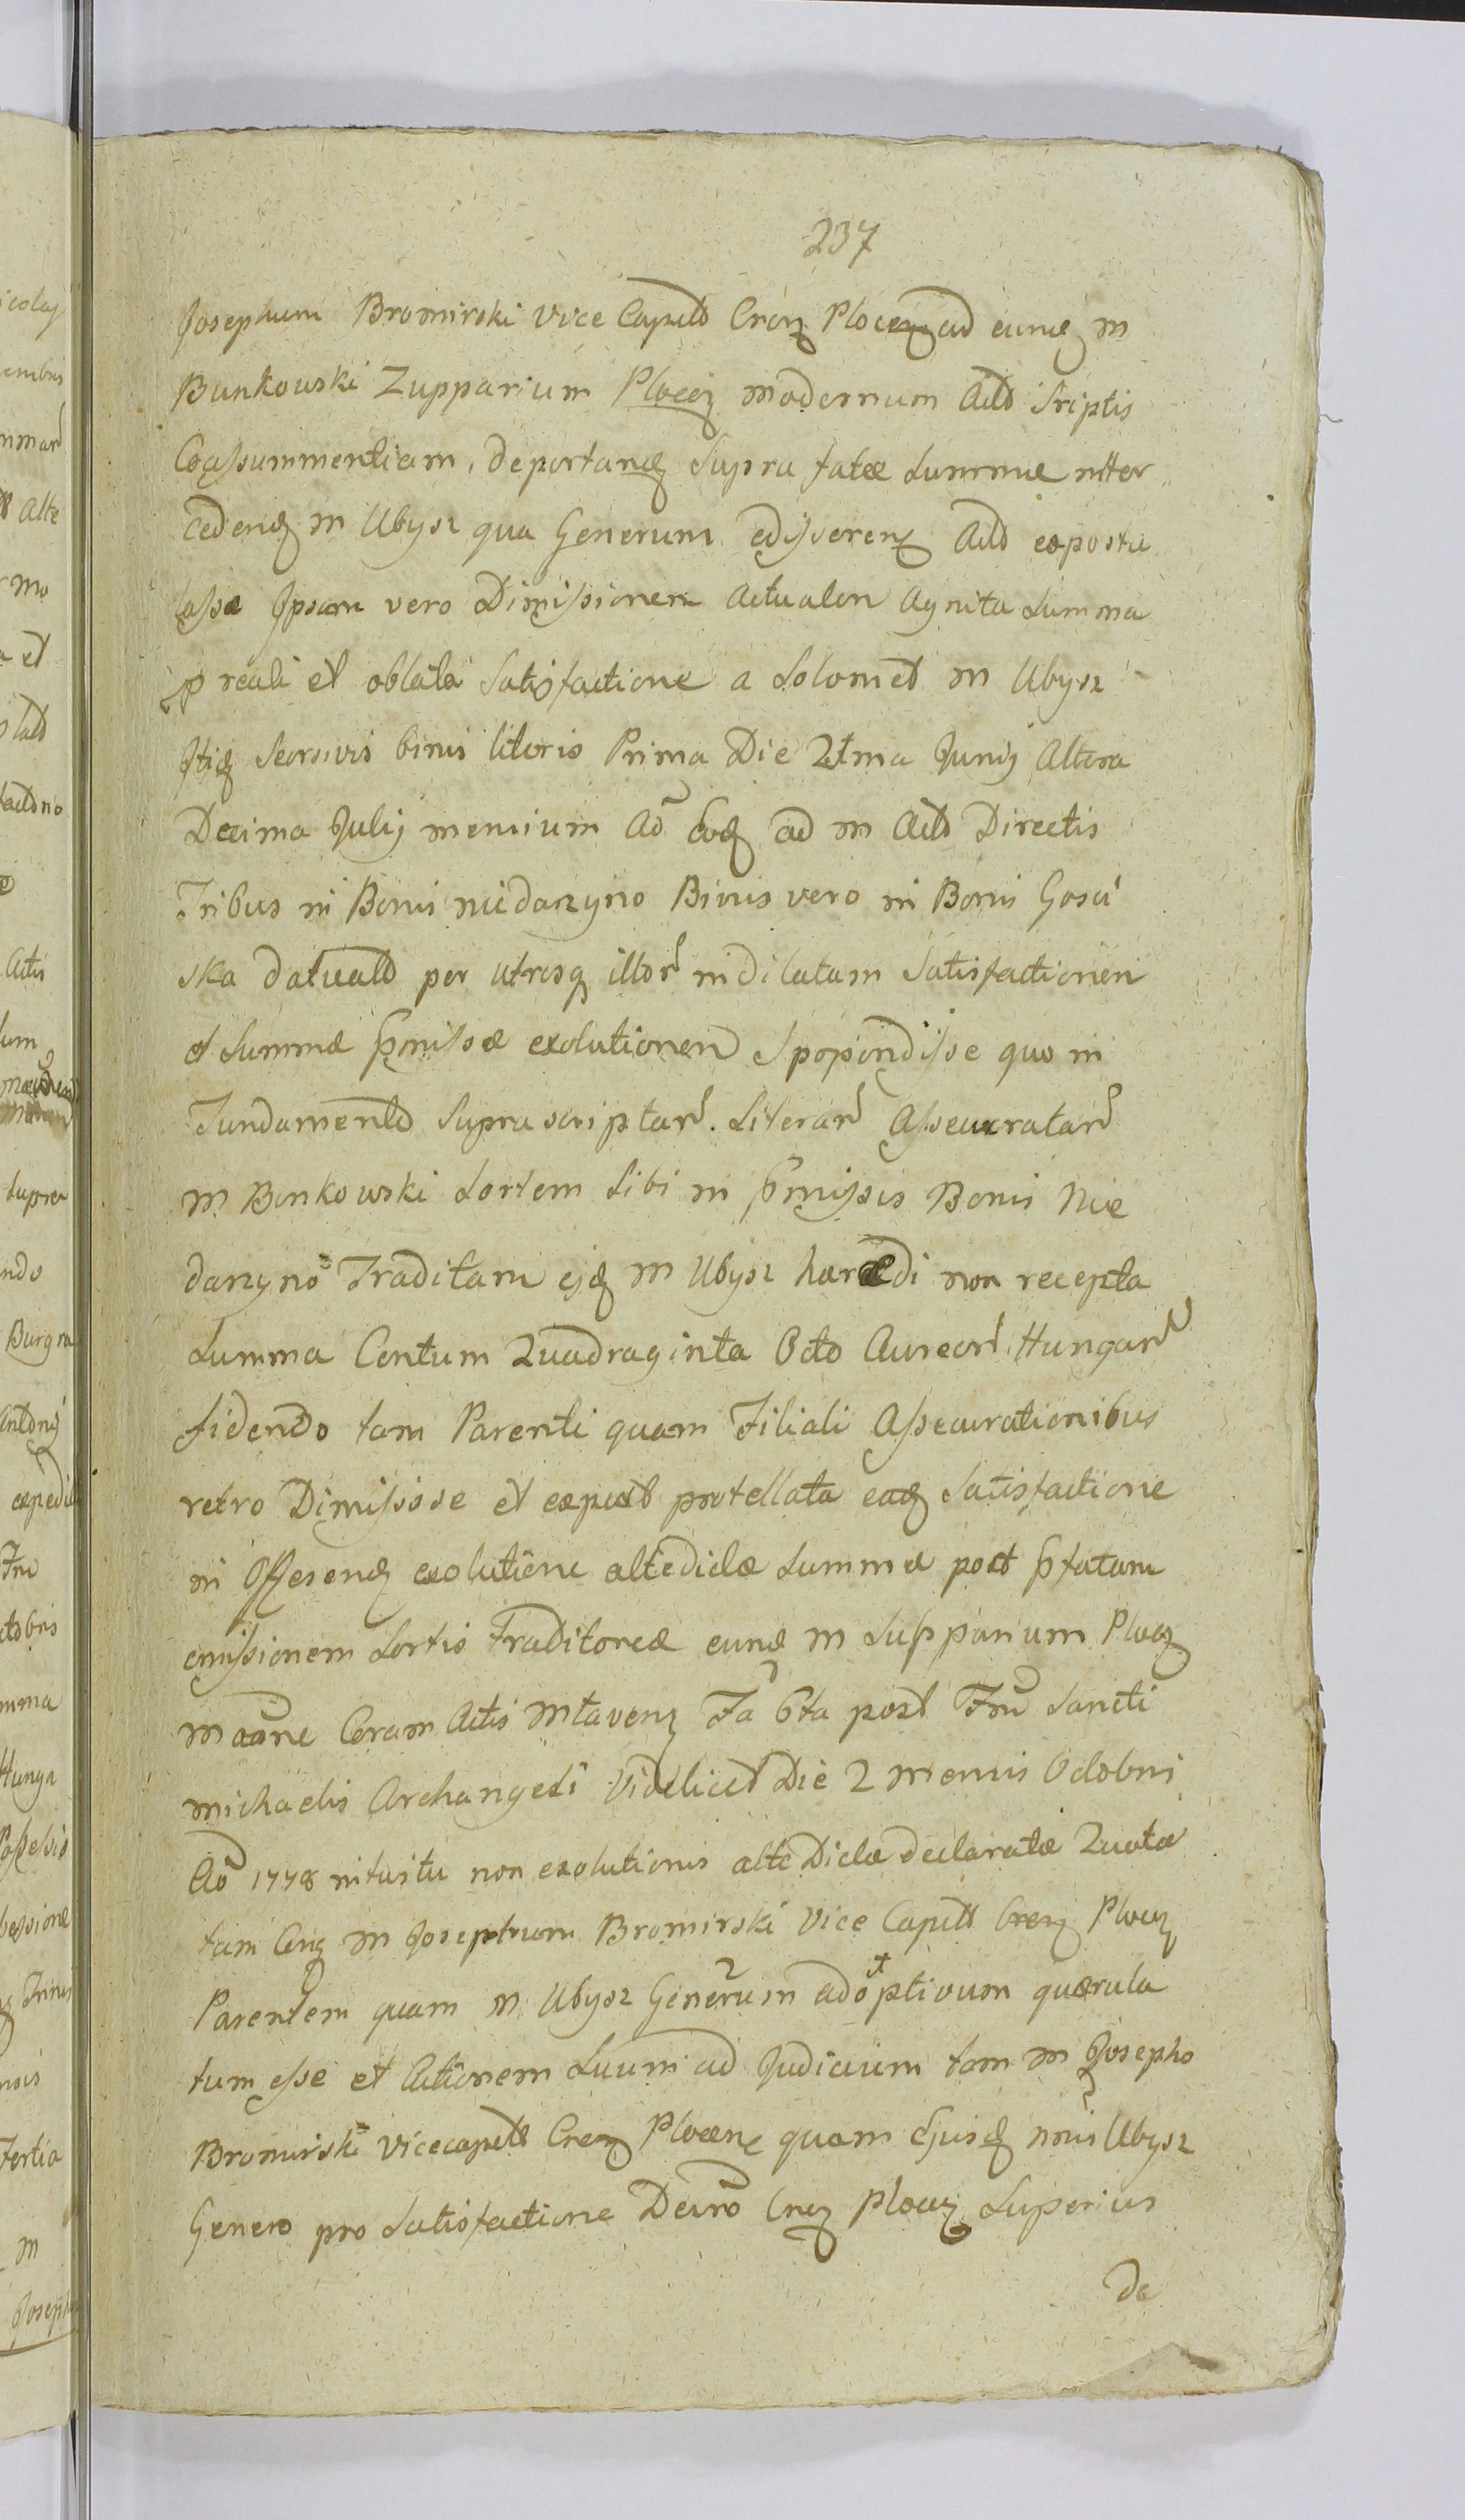 237
Josephum Bromirski Vice Capitt Crcz Plocez ad eund m
Bunkowski Zupparium Plocez modernum Actt Sriptis
Coassummentiam, deportand supra fatæ summæ inter
cedend m Ubysz qua Generum Actt expostu
lasse Ipsam vero Dimissionem Actualem Agnita summa
p reali et oblata satisfactione a solomet m Ubysz
Itiq seorsivis binis literis Prima Die 21ma Junij Altera
Decima Julij mensium Ao eod ad m Actt Directis
Tribus in Bonis niedarzyno Binis vero in Bonis Gosci
ska datualt per utrosq illor indilatam satisfactionem
et summæ pmissæ exolutionem Spopondisse quo in
Fundamento supra scriptar. Literar Assecuratar
m Bonkowski Sortem sibi in pmissis Bonis Nie
darzyno Traditam ejd m Ubysz hæredi non recepta
summa Centum Quadraginta Octo Aureor Hungar
fidendo tam Parenti quam Filiali Assecurationibus
retro Dimississe et expost protellata ead satisfactione
in Offerend exolutione altedictæ summæ post pfatam
emissionem sortis Traditoreæ eund m Supparium Plocz
Coram Actis Fa 6ta post Fm sancti
michaelis Archangeli videlicet Die 2 mensis Octobris
Ao 1778 intuitu non exolutionis alte Dictæ declaratæ Quotæ
tam m Josephum Bromirski Vice Capitt Crcz Plocz
Parentem quam m Ubysz Generum adoptivum quærula
tum esse et Actionem suum ad Judicium tam m Josepho
Bromirski Vicecapitt Crcz Plocene quam Ejusd Ubysz
Genero pro satisfactione Decro Crcz Plocz superius
de